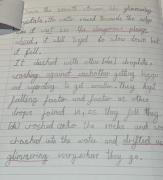 down the smooth stream like glimmering
crystals, the water raced towards the edge
as it met the dangerous plunge
, it still tried to slow down but
it fell.
It dashed with other droplets
crashing against getting bigger
and expanding to get smaller. They kept
falling faster and faster as other
drops joined in, as they fell they
crashed onto the rocks and
crashed into the water and drifted
glimmering everywhere they go.